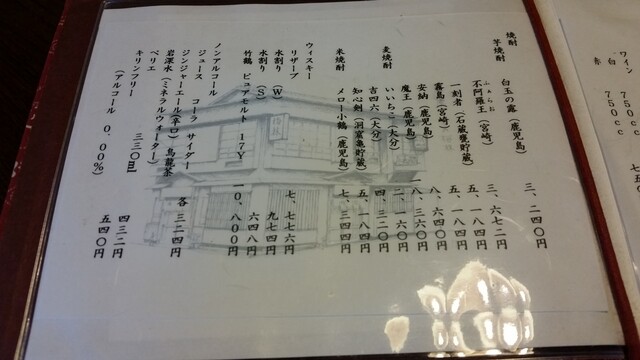 ワイン
白 750cc
赤 750cc
焼酎
芋焼酎
白玉の露(鹿児島) 三、二四〇円
ふぁらお
不阿羅王(宮崎) 三、六七二円
一刻者(石蔵甕貯蔵) 五、一八四円
霧島(宮崎) 五、一八四円
安納(鹿児島) 八、六四〇円
魔王(鹿児島) 八、三六〇円
麦焼酎
いいちこ(大分) 二、一六〇円
吉四六(大分) 四、三二〇円
知心剣(洞窟甕貯蔵) 五、一八四円
米焼酎
メロー小鶴(鹿児島) 七、三四四円
ウィスキー
リザーブ 七、七七六円
水割り(W) 九七四円
水割り(S) 六四八円
竹鶴 ピュアモルト 17Y 一〇、八〇〇円
ノンアルコール
ジュース コーラ サイダー
ジンジャーエール(辛口) 烏龍茶 各 三二四円
岩深水(ミネラルウォーター)
ペリエ 三三〇ml 四三二円
キリンフリー 五四〇円
(アルコール 0.00%)